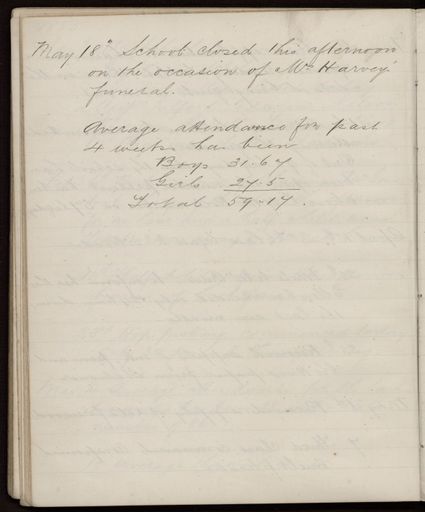 May 18th School closed this afternoon
on the occasion of Mr Harvey's
funeral.
Average attendance for past
4 weeks has been
Boys 31.67
Girls 27.5
Total 59.17.